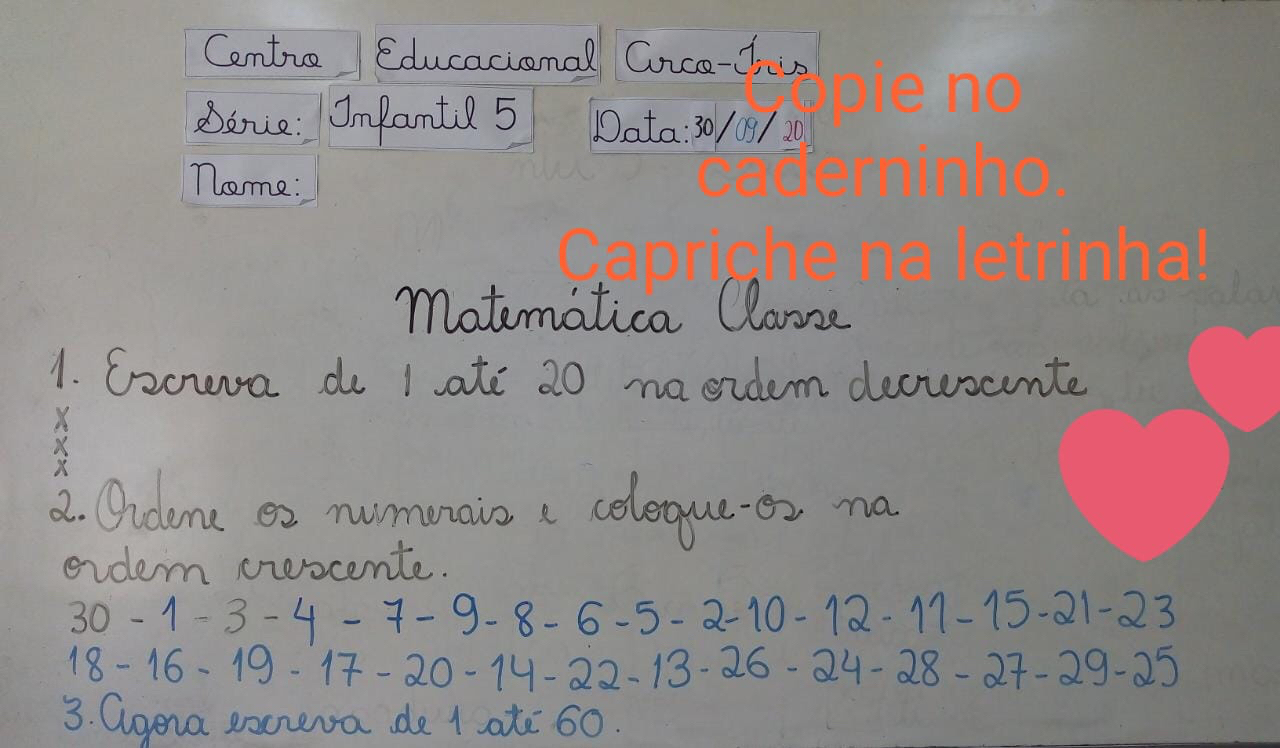 Centro Educacional Arco-Íris
Série: Infantil 5 Data: 30/09/20
Nome:
Copie no
caderninho.
Capriche na letrinha!
Matemática Classe
1. Escreva de 1 até 20 na ordem decrescente
x
x
x
2. Ordene os numerais e coloque-os na
ordem crescente.
30 - 1 - 3 - 4 - 7 - 9 - 8 - 6 - 5 - 2 - 10 - 12 - 11 - 15 - 21 - 23
18 - 16 - 19 - 17 - 20 - 14 - 22 - 13 - 26 - 24 - 28 - 27 - 29 - 25
3. Agora escreva de 1 até 60.